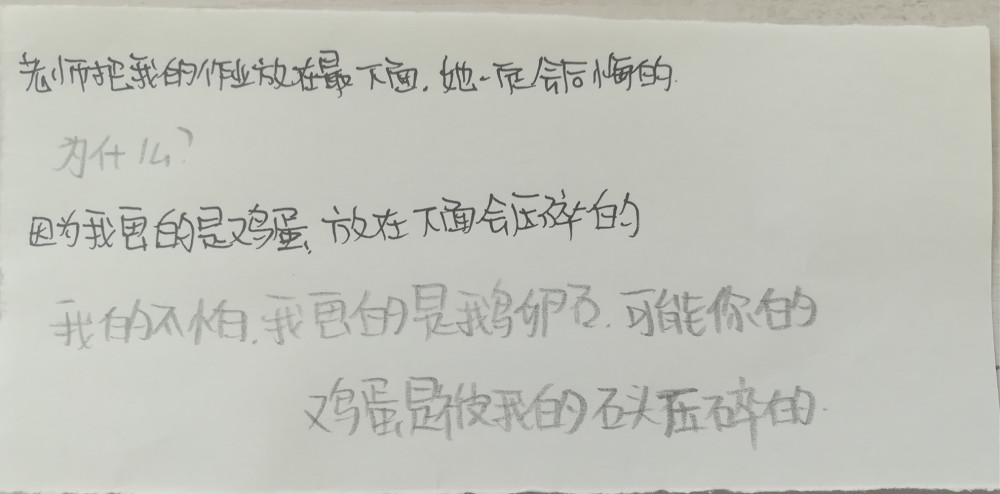 老师把我的作业放在最下面，她一定会后悔的.
为什么?
因为我画的是鸡蛋，放在下面会压碎的
我的不怕，我画的是鹅卵石.可能你的
鸡蛋是被我的石头压碎的.